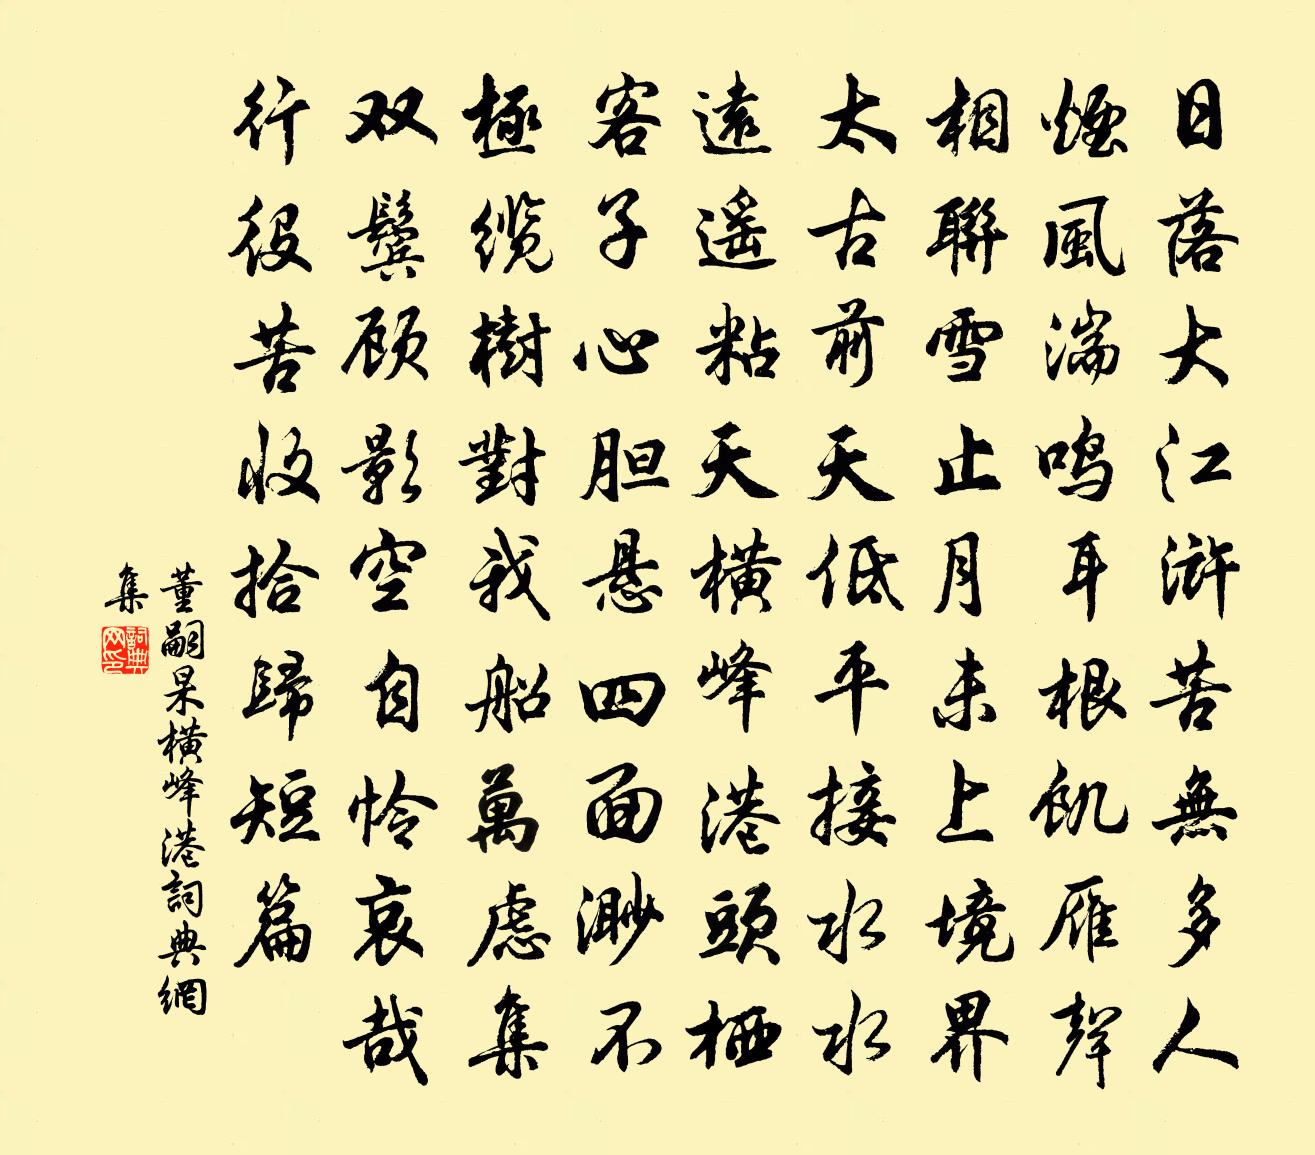 日落大江滸苦無多人
煙風湍鸣耳根飢雁聲
相聯雪止月未上境界
太古前天低平接水水
遠遥粘天橫峰港頭栖
客子心胆悬四面渺不
極缆樹對我船萬慮集
双鬓顾影空自怜哀哉
行役苦收拾歸短篇
董嗣杲橫峰港詞典網
集
詞典
网印